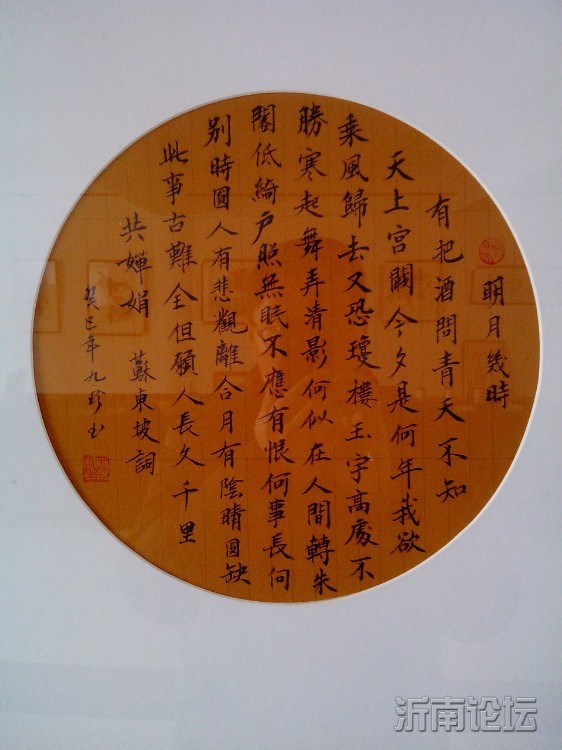 明月幾時
有把酒問青天不知
天上宮闕今夕是何年我欲
乘風歸去又恐瓊樓玉宇高處不
勝寒起舞弄清影何似在人間轉朱
閣低綺户照無眠不應有恨何事長向
别時圓人有悲觀離合月有陰晴圓缺
此事古難全但願人長久千里
共嬋娟 蘇東坡詞
癸巳年九珍书
沂南论坛